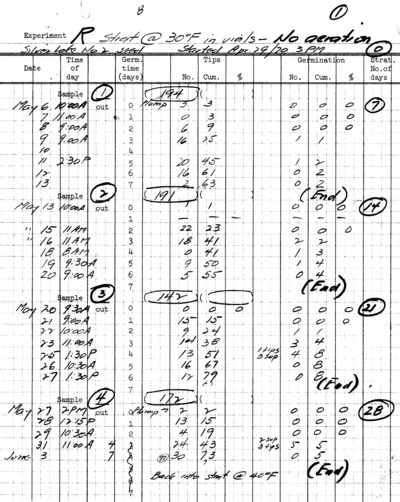 8
①
Experiment R Strat @ 30°F in vials - No aeration
Silver Lake No 2 seed Started Apr 29/70 3 PM ⓪
Date Time of day Germ. time (days) Tips No. Cum. % Germination No. Cum. % Strat. No. of days
Sample ① out 194 ( ⑦
May 6 10:00A 0 Plump 3 3 0 0 0
7 11:00A 1 0 3 0 0 0
8 9:00A 2 6 9 0 0 0
9 9:00A 3 16 25 1 1
10 4
11 2:30P 5 20 45 1 2
12 6 16 61 0 2
13 7 2 63 0 2
Sample ② out 191 ( (End) ⑭
May 13 10:00A 0 1 0 0 0
1 — — — — —
" 15 11AM 2 22 23 0 0 0
" 16 11AM 3 18 41 2 2
18 8AM 4 0 41 1 3
19 9:30A 5 9 50 1 4
20 9:00A 6 5 55 0 4
(End)
Sample ③ out 142 ( ㉑
May 20 9:30A 0 0 0 0 0 0 0
21 9:00A 1 15 15 0 0 0
22 10:00A 2 9 24 1 1
23 11:00A 3 14 38 3 4
25 1:30P 4 13 51 4 8
26 10:30A 5 16 67 0 8
27 1:30P 6 12 79 0 8
(End)
Sample ④ out 172 ( 28
May 27 2PM 0 Plump 2 2 0 0 0
28 12:15P 1 13 15 0 0 0
29 10:30A 2 4 19 0 0 0
31 11:00A 4 24 43 5 5
June 3 7 30 73 0 5
Back into strat @ 40°F (End)